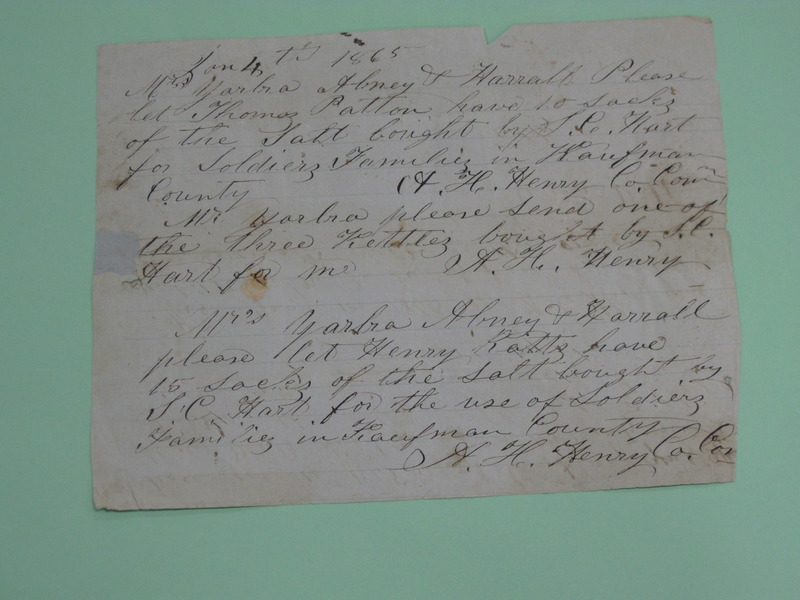 Jan 4th 1865
Mrs Yarbra Abney & Harrall Please
let Thomas Patton have 10 sacks
of the Salt bought by S.C. Hart
for Soldiers Families in Kaufman
County A. H. Henry Co. Com
Mr Yarbra please send one of
the three Kettles bought by S.C.
Hart for me A. H. Henry
Mrs Yarbra Abney & Harrall
please let Henry have
15 sacks of the salt bought by
S.C. Hart for the use of Soldiers
Families in Kaufman County
A. H. Henry Co. Com